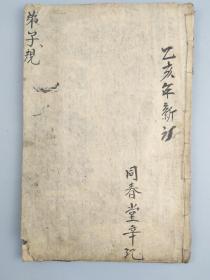 乙亥年新訂
同春堂辛记
弟子规